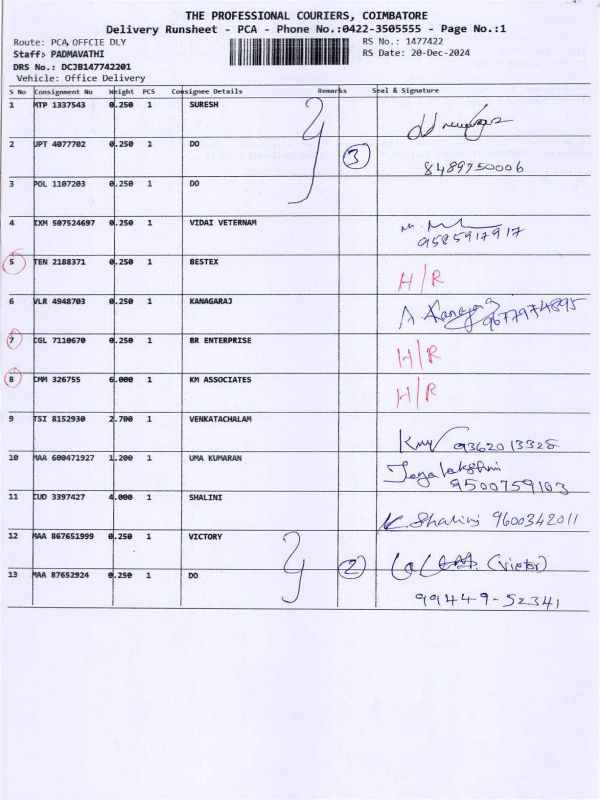 THE PROFESSIONAL COURIERS, COIMBATORE
Delivery Runsheet - PCA - Phone No.:0422-3505555 - Page No.:1
Route: PCA, OFFCIE DLY RS No.: 1477422
Staff: PADMAVATHI RS Date: 20-Dec-2024
DRS No.: DCJB147742201
Vehicle: Office Delivery
S No Consignment No Weight PCS Consignee Details Remarks Seal & Signature
1 MTP 1337543 0.250 1 SURESH
2 JPT 4077702 0.250 1 DO 3 8489750006
3 POL 1107203 0.250 1 DO
4 IXM 507524697 0.250 1 VIDAI VETERNAM 9585917917
5 TEN 2188371 0.250 1 BESTEX H/R
6 VLR 4948703 0.250 1 KANAGARAJ 9677974895
7 CGL 7110670 0.250 1 BR ENTERPRISE H/R
8 CMM 326755 6.000 1 KM ASSOCIATES H/R
9 TSI 8152930 2.700 1 VENKATACHALAM 9362013328
10 MAA 600471927 1.200 1 UMA KUMARAN Jayalakshmi
9500759103
11 CUD 3397427 4.000 1 SHALINI K. Shalini 9600342011
12 MAA 867651999 0.250 1 VICTORY (Victor)
13 MAA 87652924 0.250 1 DO 2 99449-52341